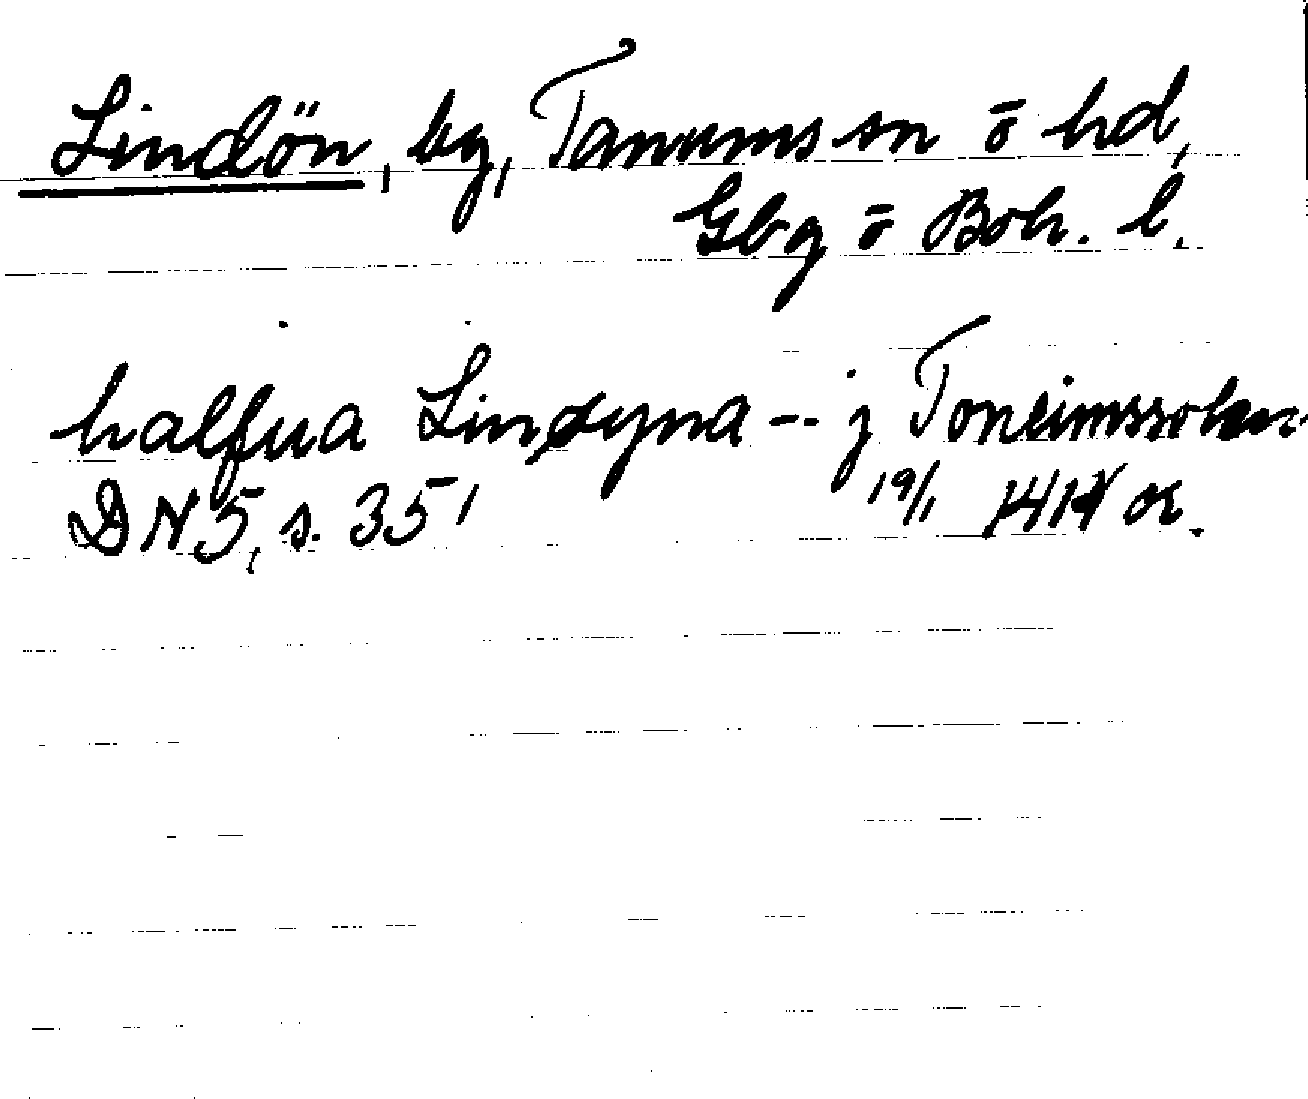 Lindön, by, Tanums sn ō hd,
Gbg ō Boh. l.
halfua Lindøyna -- j Toneimssokn
DN 5, s. 351 19/1 1414 or.